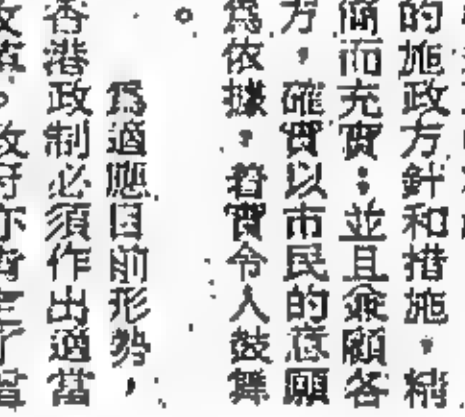 的施政方針和措施,精
簡而充實;並且兼顧各
方,確實以市民的意願
爲依據,着實令人鼓舞
。
爲適應目前形勢,
香港政制必須作出適當